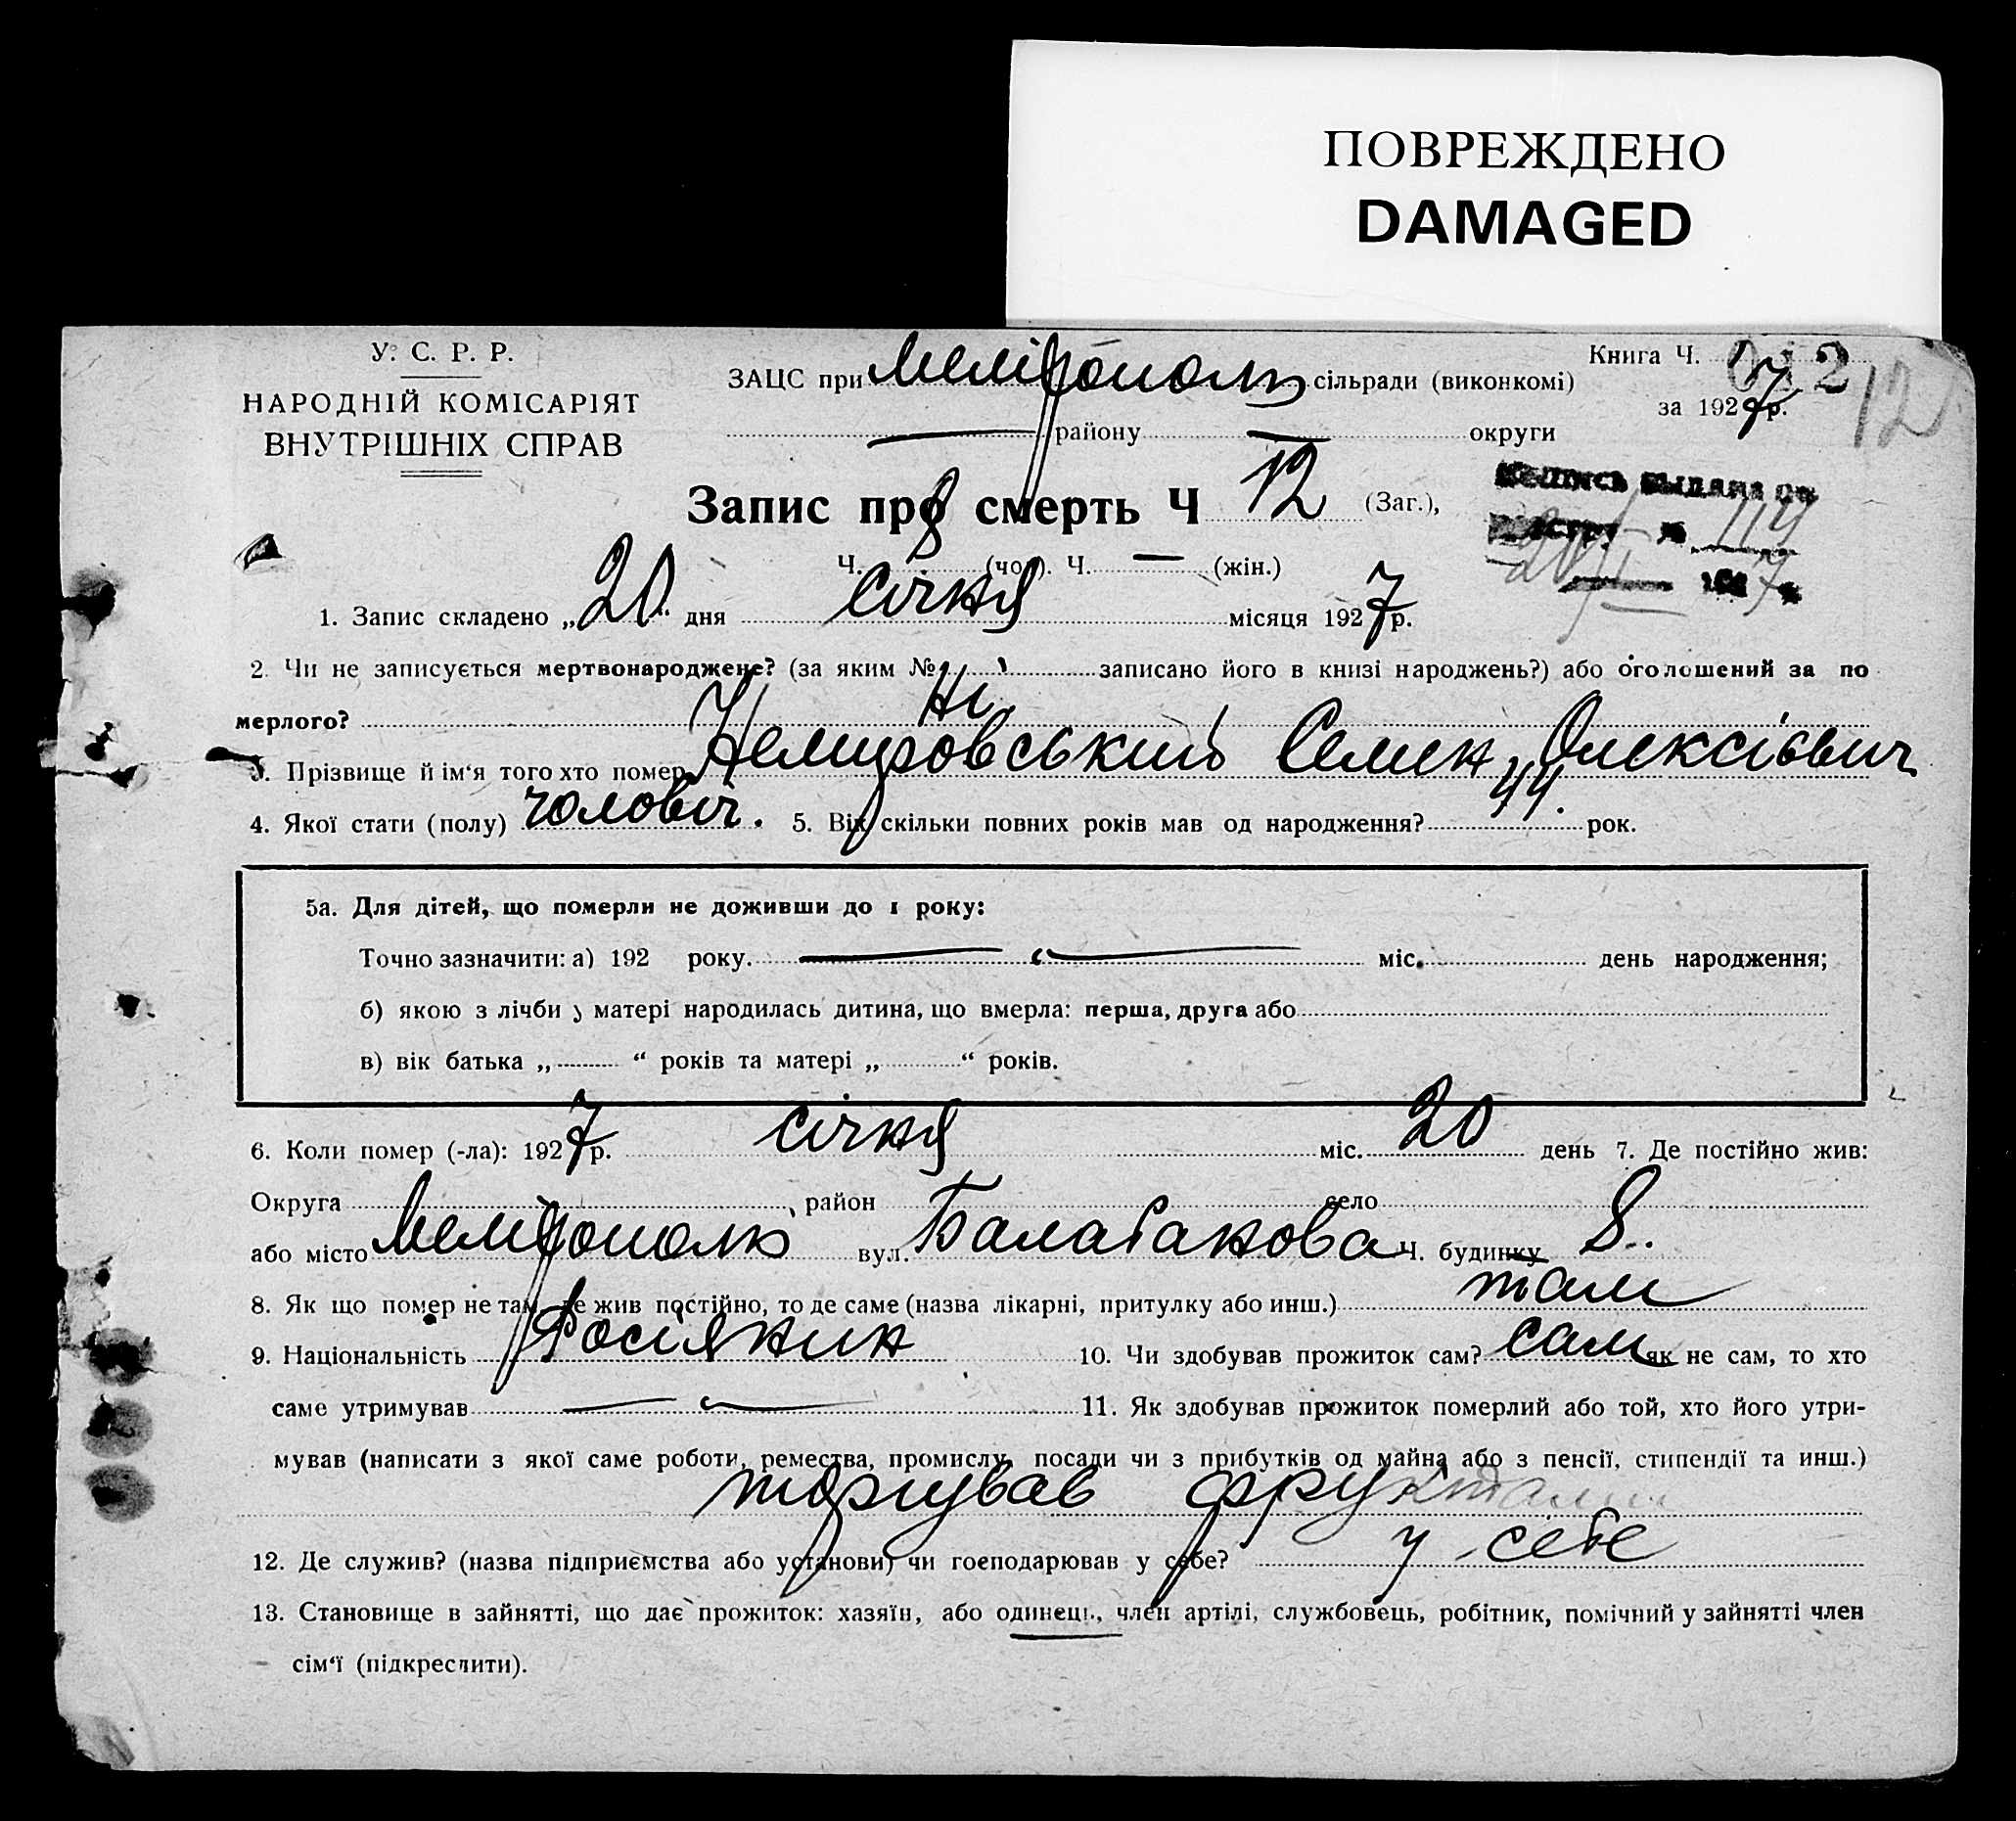 ПОВРЕЖДЕНО
DAMAGED
У. С. Р. Р.
НАРОДНІЙ КОМІСАРІЯТ
ВНУТРІШНІХ СПРАВ
ЗАЦС при Мелітополь сільради (виконкомі)
Книга Ч. 2
за 1927 р.
12
району округи
Запис про смерть Ч 12 (Заг.),
Ч. 8 (чол). Ч. — (жін.)
выдана
№ 114
1. Запис складено „20“ дня січня місяця 1927 р.
2. Чи не записується мертвонароджене? (за яким № записано його в книзі народжень?) або оголошений за по
мерлого? Ні
3. Прізвище й ім‘я того хто помер Немировський Семен Олексієвич
4. Якої стати (полу) чоловіч. 5. Вік скільки повних років мав од народження? 44. рок.
5а. Для дітей, що померли не доживши до 1 року:
Точно зазначити: а) 192 року. міс. день народження;
б) якою з лічби у матері народилась дитина, що вмерла: перша, друга або
в) вік батька „ “ років та матері „ “ років.
6. Коли помер (-ла): 1927 р. січня міс. 20 день 7. Де постійно жив:
Округа район село
або місто Мелітополь вул. Балабанова Ч. будинку 8.
8. Як що помер не там, де жив постійно, то де саме (назва лікарні, притулку або инш.) там
9. Національність Росіянин 10. Чи здобував прожиток сам? сам як не сам, то хто
саме утримував 11. Як здобував прожиток померлий або той, хто його утри-
мував (написати з якої саме роботи, ремества, промислу, посади чи з прибутків од майна або з пенсії, стипендії та инш.)
торгував фруктами
12. Де служив? (назва підприємства або установи) чи господарював у себе? у себе
13. Становище в зайнятті, що дає прожиток: хазяїн, або одинець, член артілі, службовець, робітник, помічний у зайнятті член
сім‘ї (підкреслити).